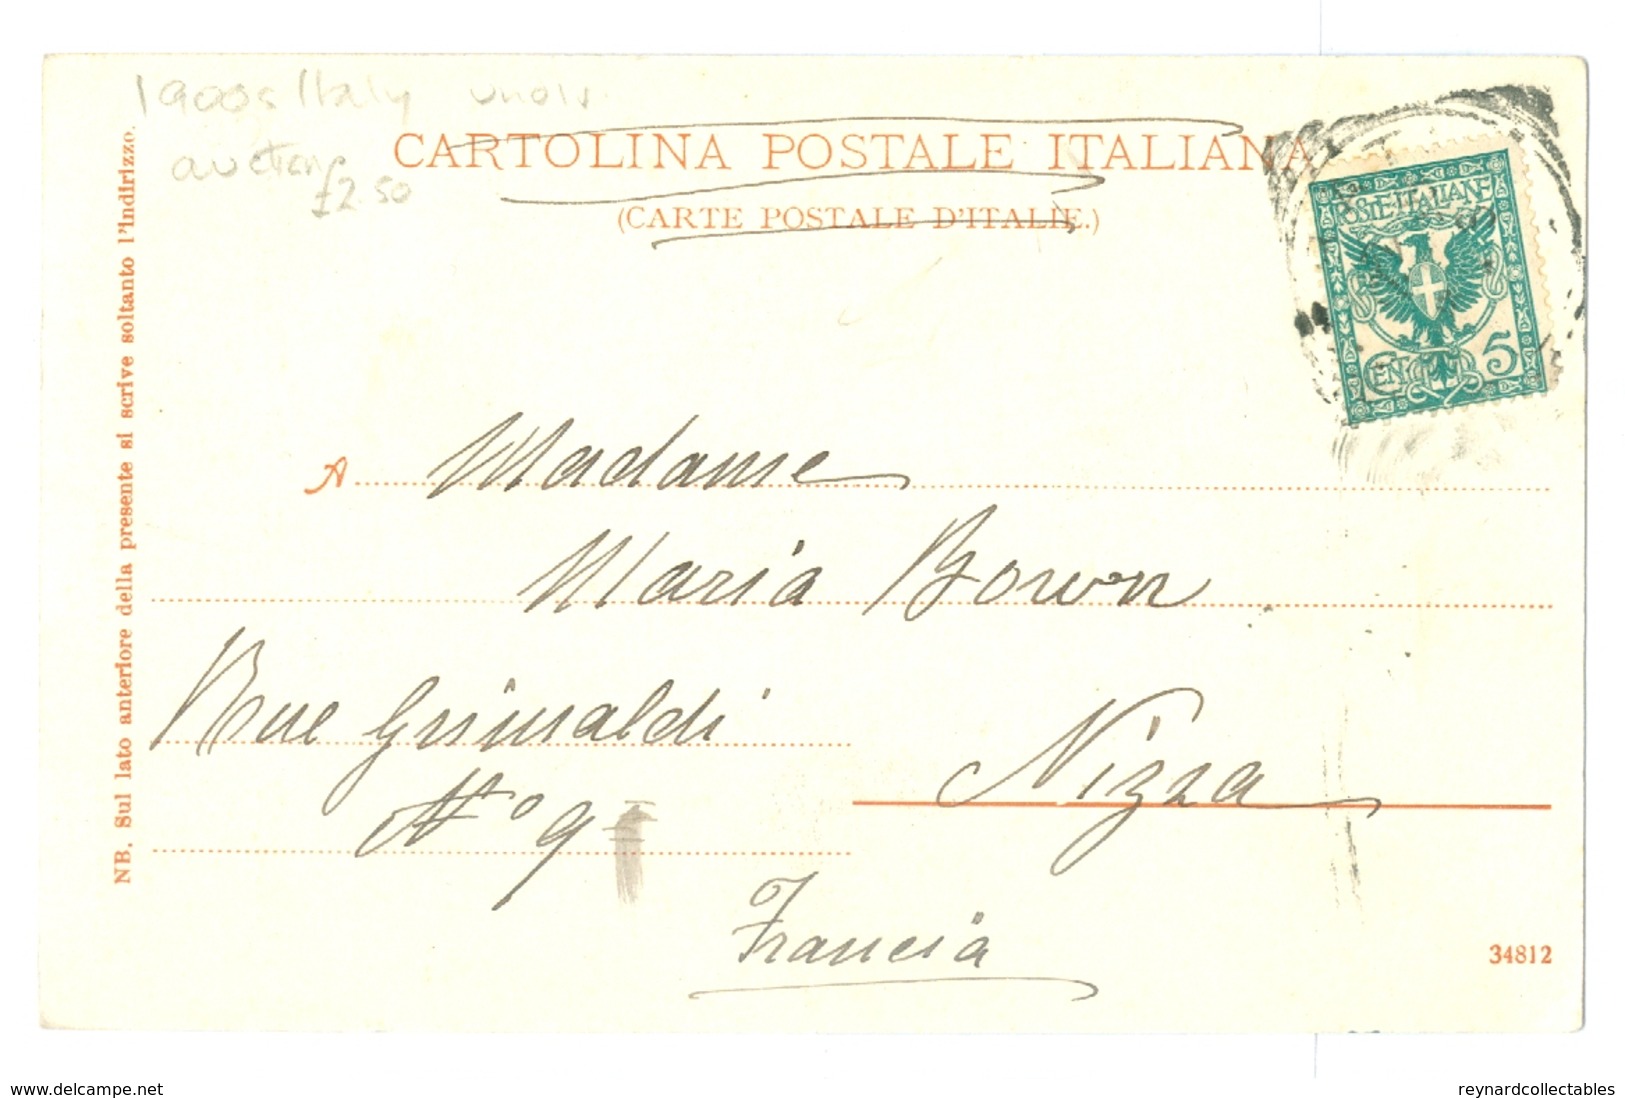 1900s Italy
auctions
£2.50
CARTOLINA POSTALE ITALIANA
(CARTE POSTALE D'ITALIE.)
NB. Sul lato anteriore della presente si scrive soltanto l'indirizzo.
POSTE·ITALIANE
CEN. 5
A Madame
Maria Bown
Rue Grimaldi
N° 9
Nizza
Francia
34812
www.delcampe.net
reynardcollectables